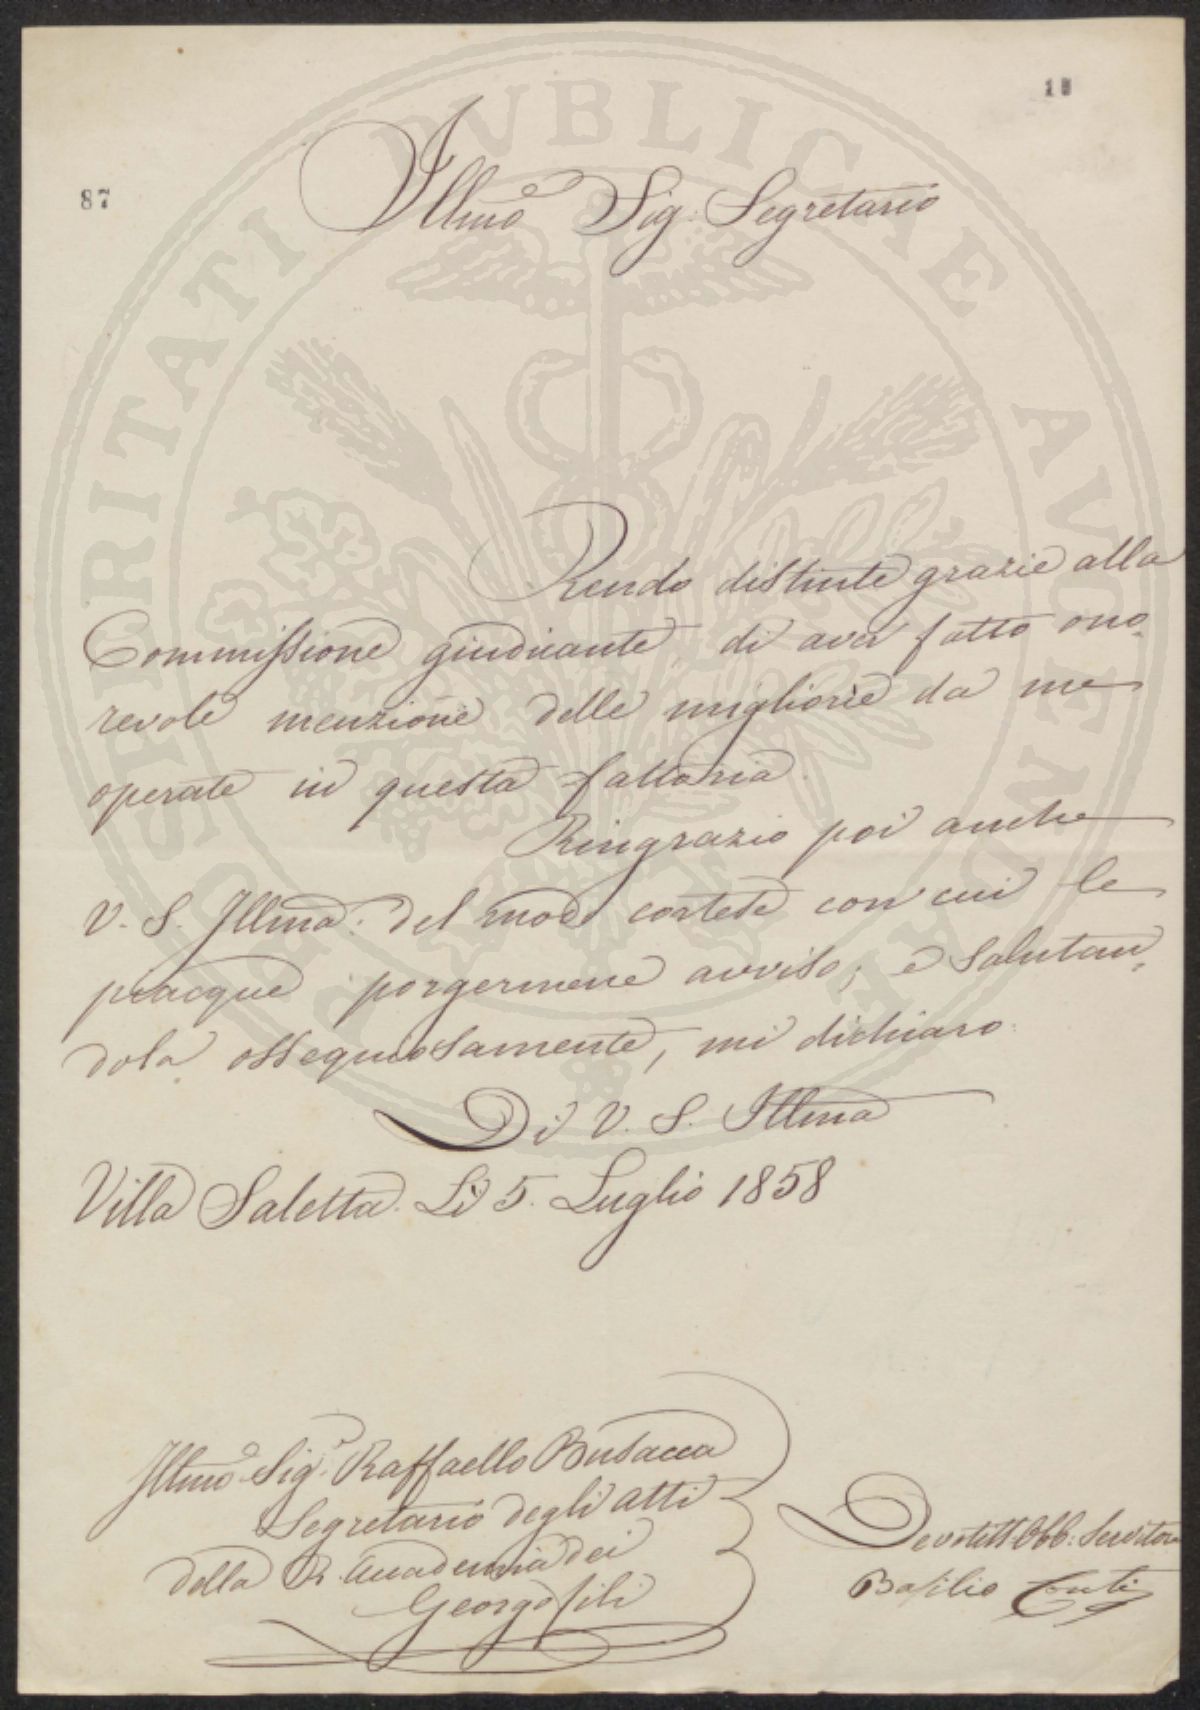 18
87
Illmo Sig. Segretario
Rendo distinte grazie alla
Commissione giudicante, di aver fatto ono,
revole menzione delle migliorie da me
operate in questa fattoria.
Ringrazio poi anche
V. S. Illma: del modo cortese con cui le
piacque porgermene avviso; e salutan,
dola ossequiosamente, mi dichiaro:
Di V. S. Illma
Villa Saletta. Li 5. Luglio 1858
Illmo Sigr Raffaello Busacca
Segretario degli Atti
della R. Accademia dei
Georgofili
Devotiss Obb: Servitore
Basilio Conti
PROSPERITATI PVBLICAE AVGENDAE